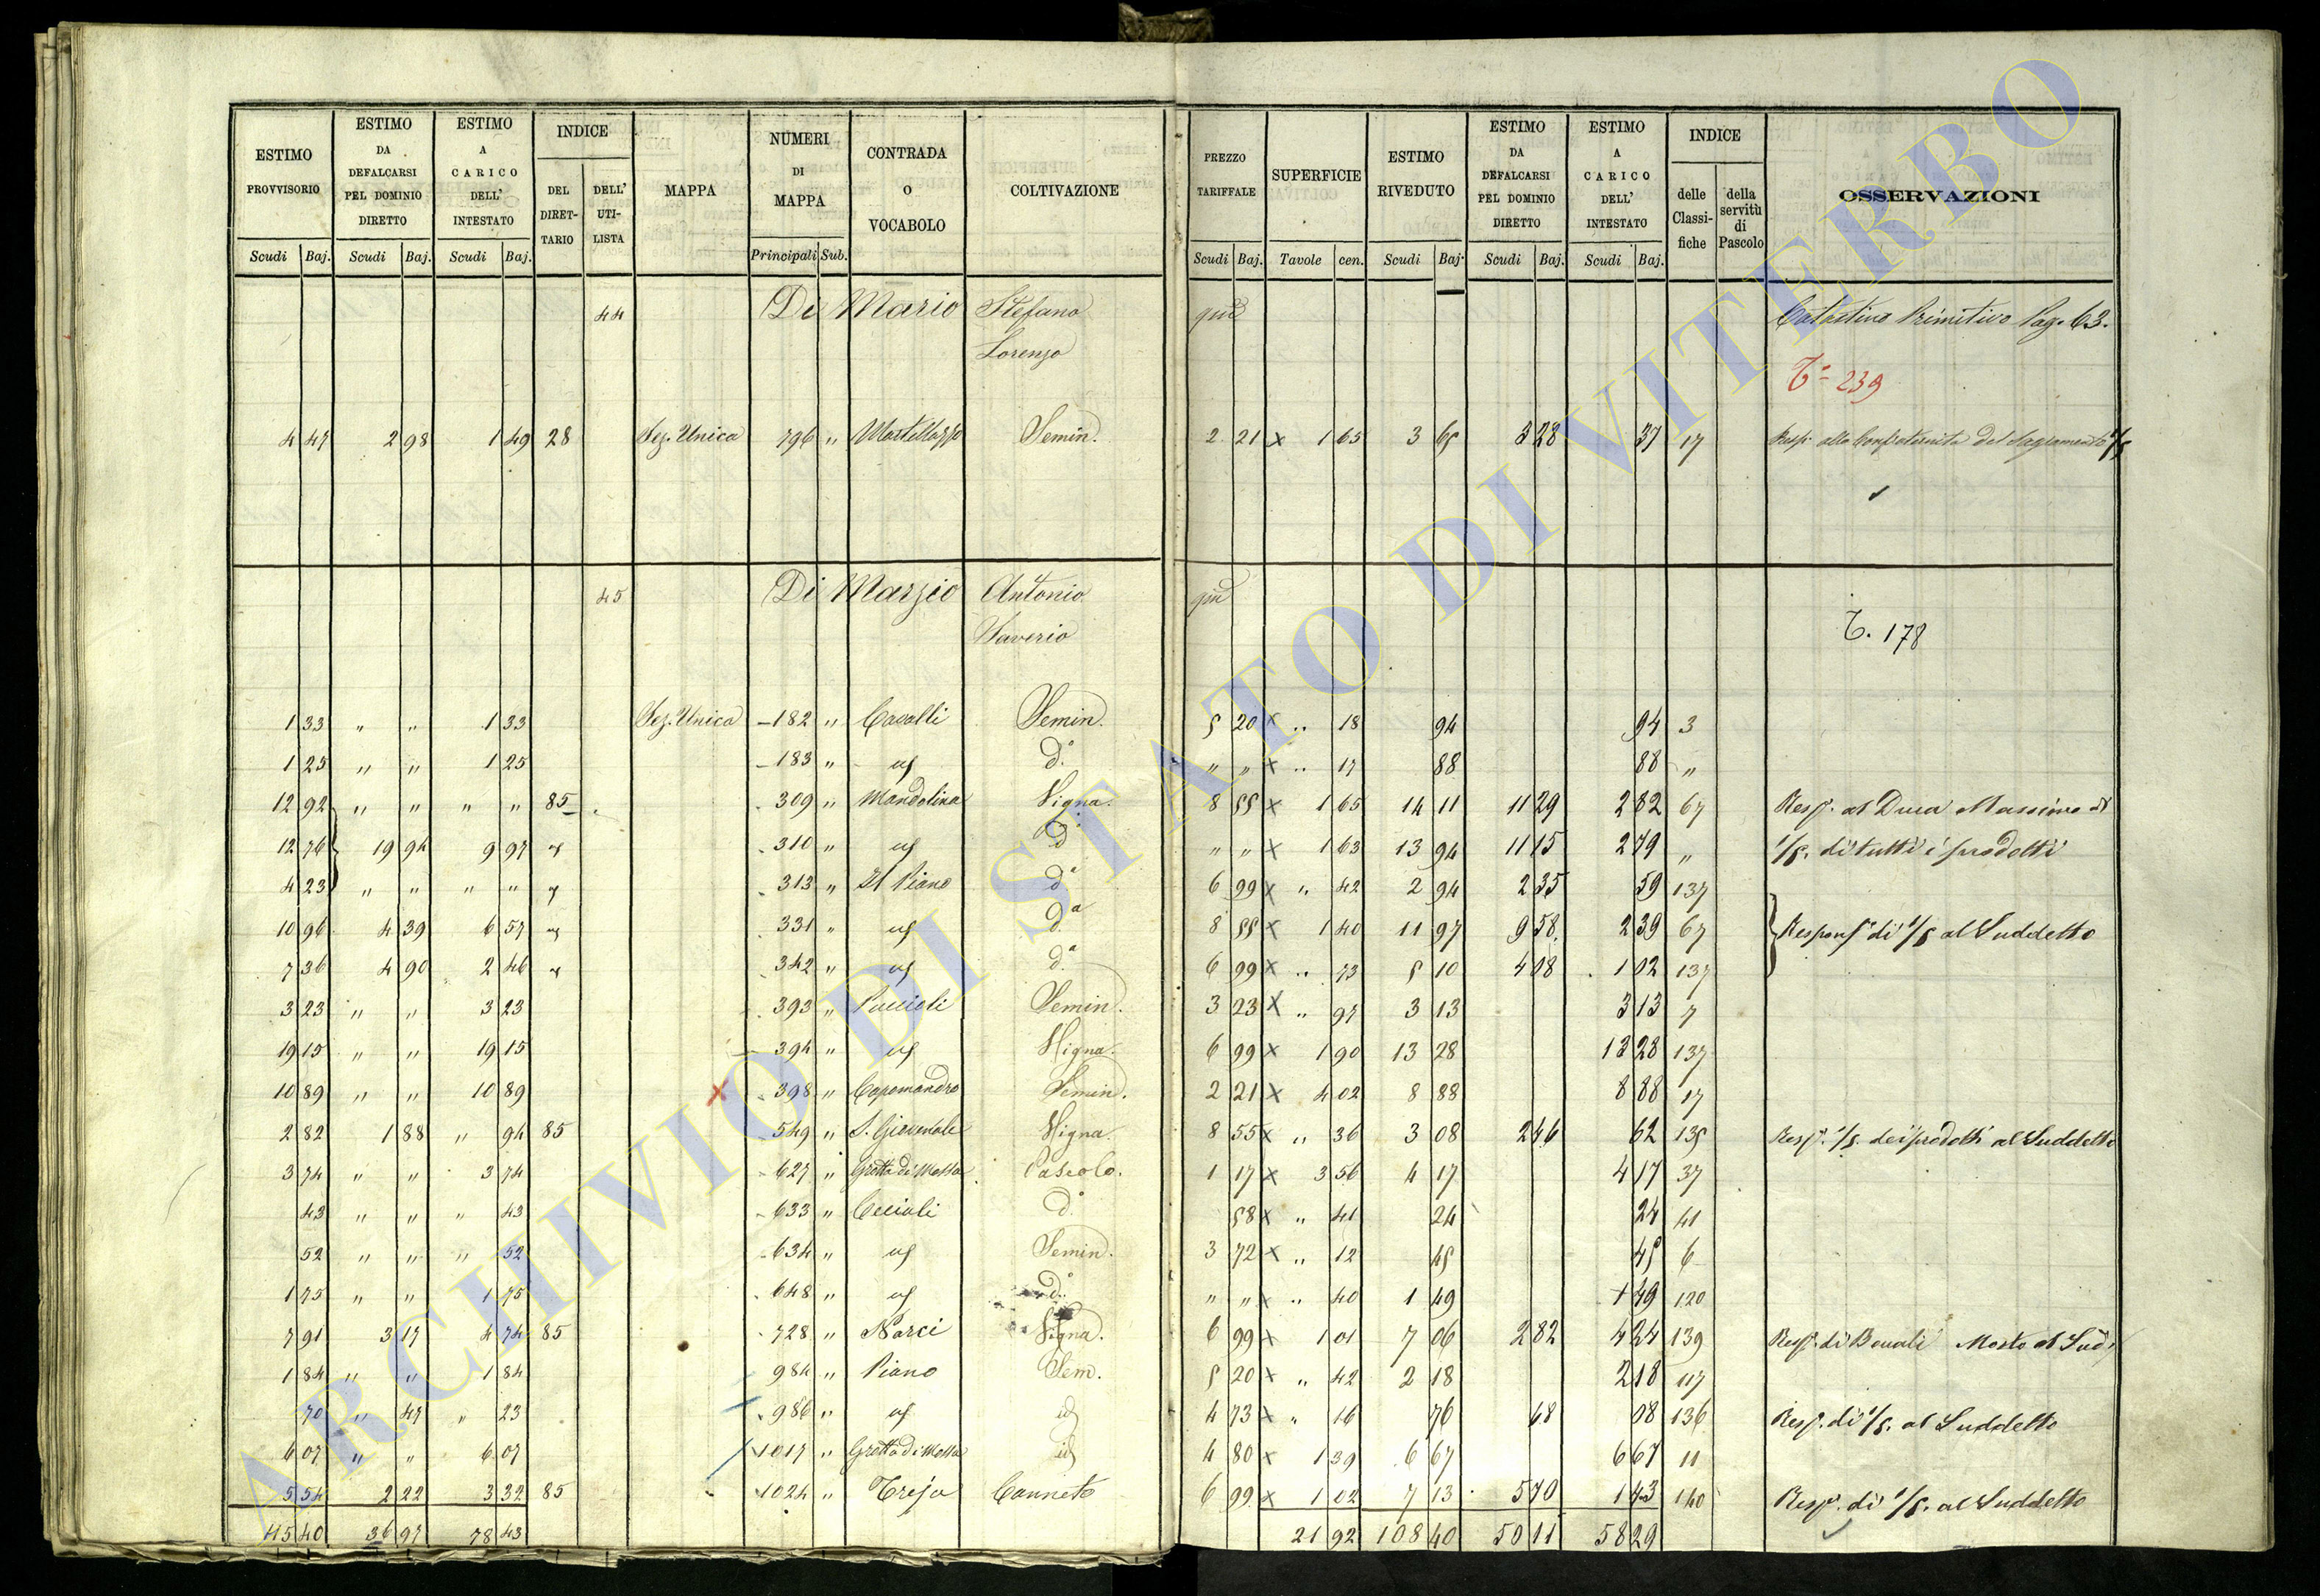 ESTIMO PROVVISORIO | ESTIMO DA DEFALCARSI PEL DOMINIO DIRETTO | ESTIMO A CARICO DELL' INTESTATO | INDICE | MAPPA | NUMERI DI MAPPA | CONTRADA O VOCABOLO | COLTIVAZIONE | PREZZO TARIFFALE | SUPERFICIE | ESTIMO RIVEDUTO | ESTIMO DA DEFALCARSI PEL DOMINIO DIRETTO | ESTIMO A CARICO DELL' INTESTATO | INDICE | OSSERVAZIONI
DEL DIRET- TARIO | DELL' UTI- LISTA | delle Classi- fiche | della servitù di Pascolo
Scudi Baj. | Scudi Baj. | Scudi Baj. | Principali Sub. | Scudi Baj. | Tavole cen. | Scudi Baj. | Scudi Baj. | Scudi Baj.
44 Di Mario Stefano qm Catastino Primitivo Pag. 63.
Lorenzo
T. 239
4 47 2 98 1 49 28 Sez. Unica 796 " Martellazzo Semin. 2 21 x 1 65 3 65 3 28 37 17 Resp. alla Confraternita del Sagramento 1/5
45 Di Marzio Antonio qm
Saverio T. 178
1 33 " " 1 33 Sez. Unica 182 " Cavalli Semin. 5 20 x " 18 94 94 3
1 25 " " 1 25 183 " id d.° " " x " 17 88 88 "
12 92 " " " " 85 309 " Mandolina Vigna. 8 55 x 1 65 14 11 11 29 2 82 67 Resp. al Duca Massimo di
12 76 19 94 9 97 " 310 " id d.° " " x 1 63 13 94 11 15 2 79 " 1/5. di tutti i prodotti
4 23 " " " " " 313 " Il Piano d.° 6 99 x " 42 2 94 2 35 59 137
10 96 4 39 6 57 " 331 " id d.a 8 55 x 1 40 11 97 9 58 2 39 67 Respons. di 1/5 al Suddetto
7 36 4 90 2 46 " 342 " id d.a 6 99 x " 73 5 10 4 08 1 02 137
3 23 " " 3 23 393 " Puccioli Semin. 3 23 x " 97 3 13 3 13 7
19 15 " " 19 15 394 " id Vigna. 6 99 x 1 90 13 28 13 28 137
10 89 " " 10 89 x 398 " Capomandro Semin. 2 21 x 4 02 8 88 8 88 17
2 82 1 88 " 94 85 549 " S. Giovenale Vigna. 8 55 x " 36 3 08 2 46 62 135 Resp. 1/5. dei prodotti al Suddetto
3 74 " " 3 74 627 " Grotta di Massa Pascolo. 1 17 x 3 56 4 17 4 17 37
43 " " " 43 633 " Cecioli d.° 58 x " 41 24 24 41
52 " " " 52 634 " id Semin. 3 72 x " 12 45 45 6
1 75 " " 1 75 648 " id d.° " " x " 40 1 49 1 49 120
7 91 3 17 4 74 85 728 " Narci Vigna. 6 99 x 1 01 7 06 2 82 4 24 139 Resp. di Bocali Mosto al Sud.
1 84 " " 1 84 984 " Piano Sem. 5 20 x " 42 2 18 2 18 117
70 " 47 " 23 986 " id id 4 73 x " 16 76 68 08 136 Resp. di 1/5. al Suddetto
6 07 " " 6 07 1017 " Grotta di Massa id 4 80 x 1 39 6 67 6 67 11
5 54 2 22 3 32 85 1024 " Treja Canneto 6 99 x 1 02 7 13 5 70 1 43 140 Resp. di 1/5. al Suddetto
115 40 36 97 78 43 21 92 108 40 50 11 58 29
ARCHIVIO DI STATO DI VITERBO